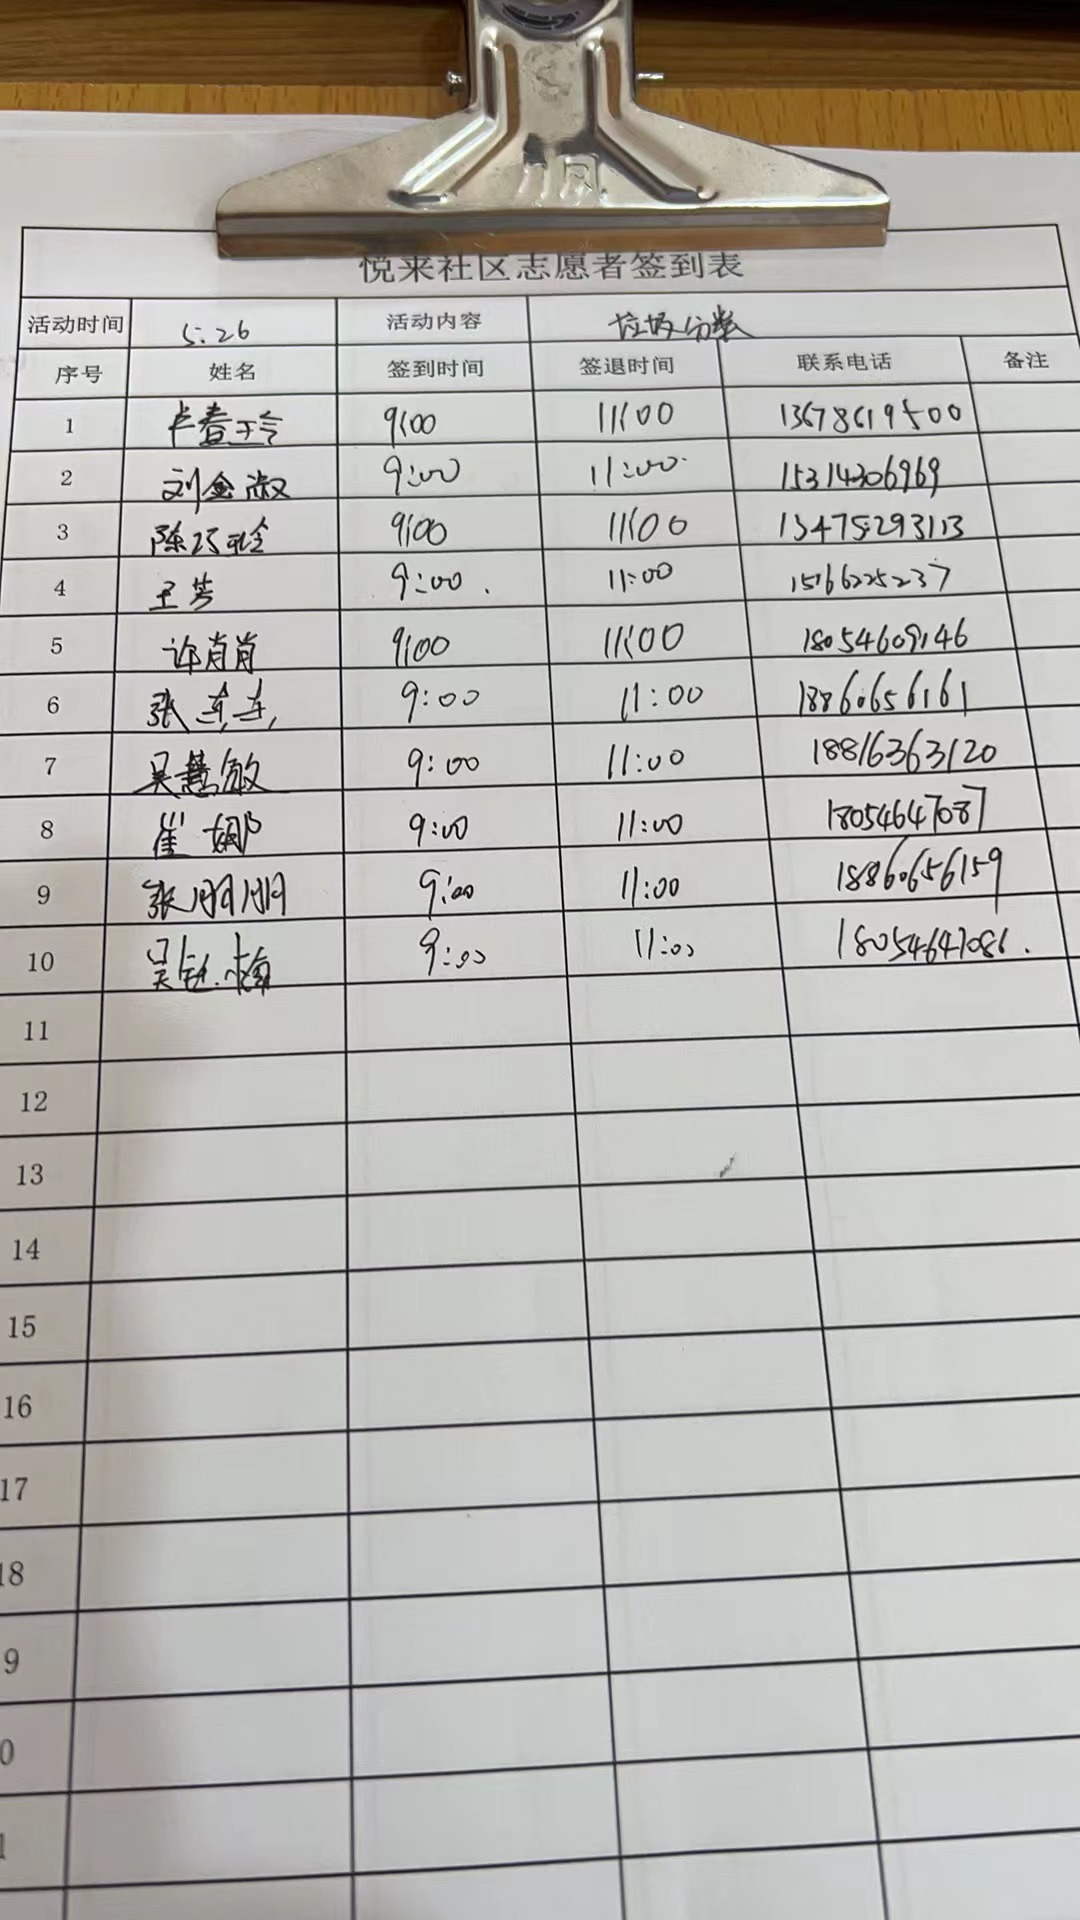 悦来社区志愿者签到表
活动时间 5.26 活动内容 垃圾分类
序号 姓名 签到时间 签退时间 联系电话 备注
1 9:00 11:00 13678619500
2 刘金淑 9:00 11:00 15314306969
3 陈巧玲 9:00 11:00 13475293113
4 王芳 9:00 11:00 15166225237
5 许肖肖 9:00 11:00 18054609146
6 张 9:00 11:00 18860656161
7 吴慧敏 9:00 11:00 18816363120
8 崔娜 9:00 11:00 18054647087
9 张朋朋 9:00 11:00 18860656159
10 吴 梅 9:00 11:00 18054647086.
11
12
13
14
15
16
17
18
9
0
1